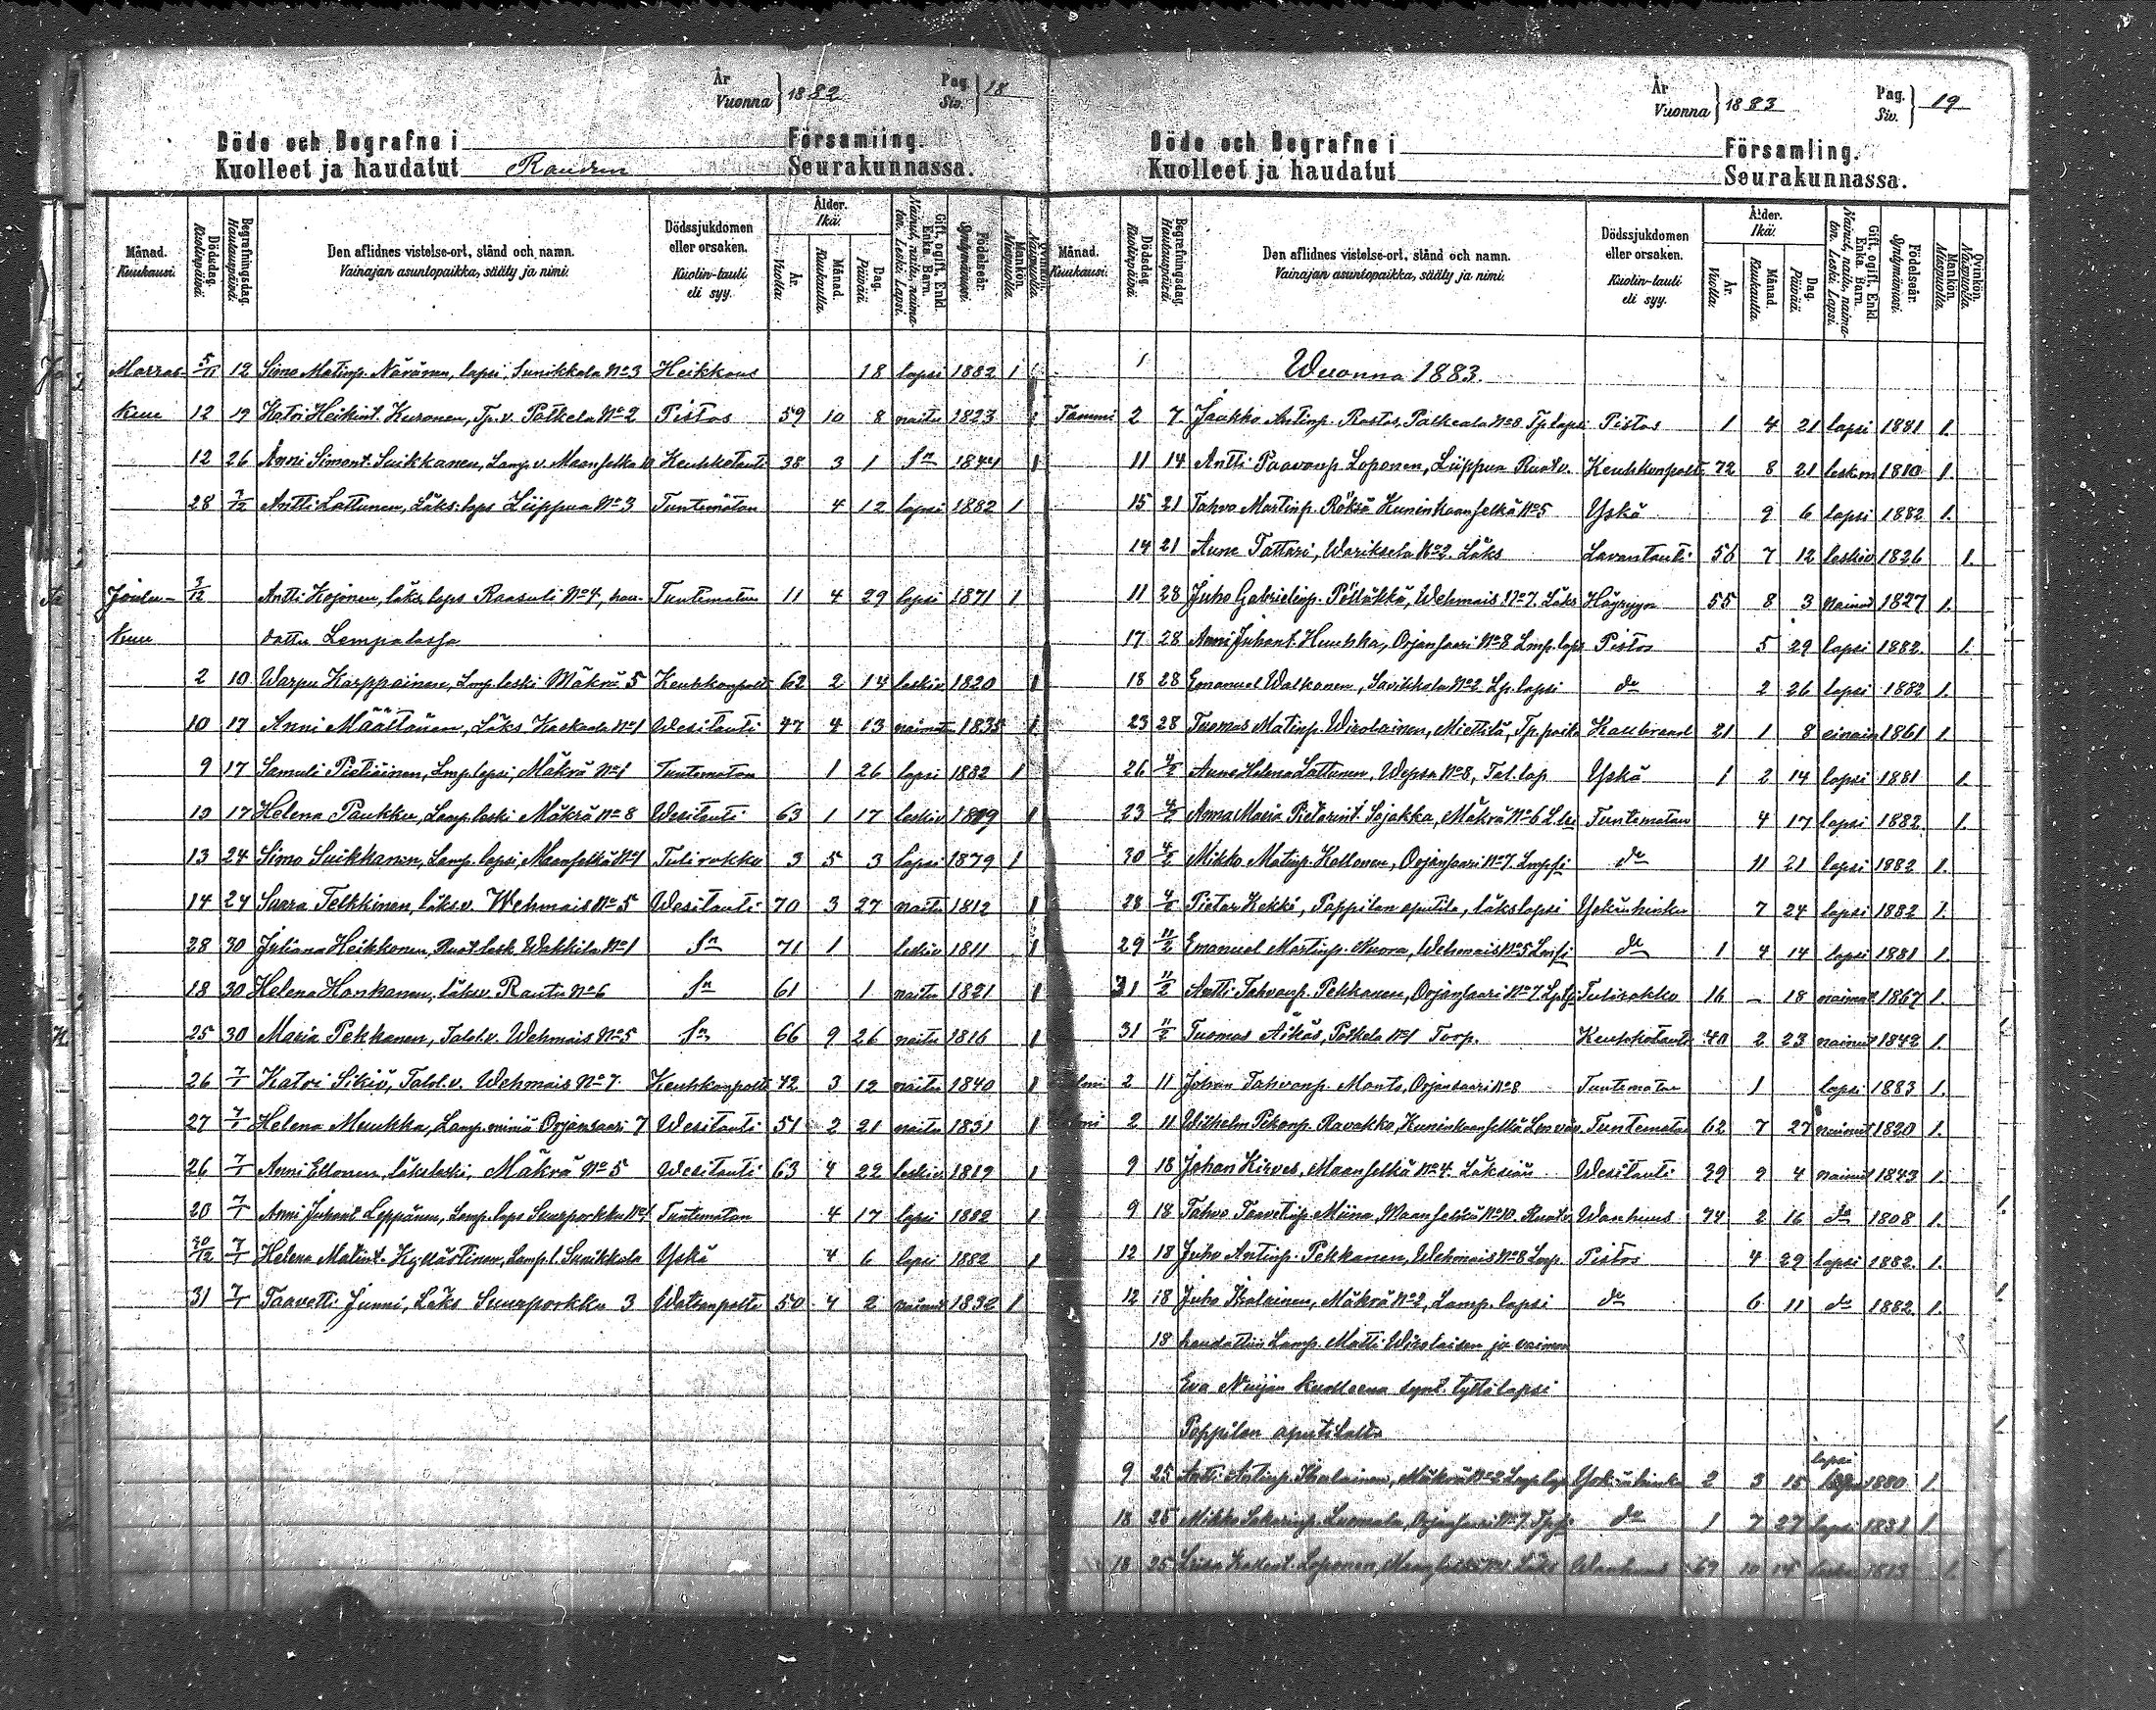 År
Vuonna } 1882
Pag.
Siv. } 18
Döde och Begrafne i Församiing.
Kuolleet ja haudatut Raudun Seurakunnassa.
Månad. Kuukausi.
Dödsdag. Kuolinpäivä.
Begrafningsdag. Hautauspäivä.
Den aflidnes vistelse-ort, stånd och namn. Vainajan asuntopaikka, sääty ja nimi.
Dödssjukdomen eller orsaken. Kuolin-tauti eli syy.
Ålder. Ikä:
År. Vuotta.
Månad. Kuukautta.
Dag. Päivää.
Gift, ogift, Enkl. Enka. Barn. Nainut, naitu, naimaton. Leski Lapsi.
Födelseår. Syntymävuosi.
Mankön. Miespuolia.
Qvinkön. Naispuolia.
Marras- 5/11 12 Simo Matinp. Näränen, lapsi, Sunikkala No 3 Heikkous 18 lapsi 1882 1
kuu 12 19 Katri Heikint. Kuronen, Tp. v. Potkela No 2 Pistos 59 10 8 naitu 1823
12 26 Anni Simont. Suikkanen, Lamp. v. Maanselkä 10 Keuhkotauti 38 3 1 1844 1
28 7/12 Antti Lattunen, Läks. laps Liippua No 3 Tuntematon 4 12 lapsi 1882 1
Joulu- 3/12 Antti Kojonen, läks. laps Raasuli No 4, hau- Tuntematon 11 4 29 lapsi 1871 1
kuu dattu Lempalassa
2 10 Warpu Karppainen, Lmp. leski Mäkrä 5 Keuhkonpolt 62 2 14 leskiv 1820 1
10 17 Anni Määttänen, Läks Kaskaala No 1 Wesitauti 47 4 13 naimaton 1835 1
9 17 Samuli Pietiäinen, Lmp. lapsi, Mäkrä No 1 Tuntematon 1 26 lapsi 1882 1
10 17 Helena Paukku, Lamp. leski Mäkrä No 8 Wesitauti 63 1 17 leskiv 1819 1
13 24 Simo Suikkanen, Lamp. lapsi, Maanselkä No 1 Tulirokko 3 5 3 lapsi 1879 1
14 24 Saara Telkkinen, läks v. Wehmais No 5 Wesitauti 70 3 27 naitu 1812 1
28 30 Juliana Heikkonen, Ruot. lesk Wakkila No 1 71 1 leskiv 1811 1
18 30 Helena Honkanen, läks v. Rautu No 6 61 1 naitu 1821 1
25 30 Maria Pekkanen, Talol. v. Wehmais No 5 66 9 26 naitu 1816 1
26 7/1 Katri Sikiö, Talol. v. Wehmais No 7 Keuhkonpolte 42 3 12 naitu 1840 1
27 7/1 Helena Muukka, Lamp. miniä Orjansaari 7 Wesitauti 51 2 21 naitu 1831 1
26 7/1 Anni Ellonen, läks leski, Mäkrä No 5 Wesitauti 63 4 22 leskiv 1819 1
20 7/1 Anni Juhont Leppänen, Lamp. laps Suurporkku No 1 Tuntematon 4 17 lapsi 1882 1
30/12 7/1 Helena Matint. Kyllästinen, Lamp. l. Sunikkala Yskä 4 6 lapsi 1882 1
31 7/1 Taavetti Junni, Läks Suurporkku 3 Watsanpolte 50 4 2 nainut 1832 1
År
Vuonna } 1883
Pag.
Siv. } 19
Döde och Begrafne i Församling.
Kuolleet ja haudatut Seurakunnassa.
Månad. Kuukausi.
Dödsdag. Kuolinpäivä.
Begrafningsdag. Hautauspäivä.
Den aflidnes vistelse-ort, stånd och namn. Vainajan asuntopaikka, sääty ja nimi.
Dödssjukdomen eller orsaken. Kuolin-tauti eli syy.
Ålder. Ikä:
År. Vuotta.
Månad. Kuukautta.
Dag. Päivää.
Gift, ogift, Enkl. Enka. Barn. Nainut, naitu, naimaton. Leski Lapsi.
Födelseår. Syntymävuosi.
Mankön. Miespuolia.
Qvinkön. Naispuolia.
Wuonna 1883.
Tammi 2 7 Jaakko Antinp. Rastas, Palkeala No 8 Tp. lapsi Pistos 1 4 21 lapsi 1881 1.
11 14 Antti Paavonp Loponen, Liippua Ruotv. Keuhkonpolte 72 8 21 leskm 1810 1.
15 21 Tahvo Martinp. Röksä Kuninkaanselkä No 5 Yskä 9 6 lapsi 1882 1.
14 21 Anna Tattari, Wariksela No 2. Läks Lavantauti 56 7 12 leskiv 1826 1.
11 28 Juho Gabrielinp. Pölläkkä, Wehmais No 7. Läks 55 8 3 nainut 1827 1.
17 28 Anni Juhont. Huuhka, Orjansaari No 8 Lmp. laps Pistos 5 29 lapsi 1882. 1.
18 28 Emanuel Walkonen, Savikkola No 2 Lp. lapsi do 2 26 lapsi 1882 1.
23 28 Tuomas Matinp. Wirolainen, Miettilä, Tp. poika Kallbrand 21 1 8 1861 1.
26 4/2 Anna Helena Lattunen, Wepsa No 8, Tal. lap. Yskä 1 2 14 lapsi 1881 1.
23 4/2 Anna Maria Pietarint. Sojakka, Mäkrä No 6 Tuntematon 4 17 lapsi 1882. 1.
30 4/2 Mikko Matinp. Kollonen, Orjansaari No 7. do 11 21 lapsi 1882 1.
28 4/2 Pietar Kekki, Pappilan aputila, läks lapsi Yskänhinku 7 24 lapsi 1882 1.
29 11/2 Emanuel Martinp. Nuora, Wehmais No 5 do 1 4 14 lapsi 1881 1.
31 11/2 Antti Tahvonp. Pekkanen, Orjansaari No 7 Tulirokko 16 - 18 naimat 1867 1
31 11/2 Tuomas Äikäs, Potkela No 1 Torp. Keuhkotauti 40 2 23 nainut 1842 1.
2 11 Johan Tahvonp. Manto, Orjansaari No 8 Tuntematon 1 lapsi 1883 1.
2 11 Wilhelm Pekanp. Ravakko, Kuninkaanselkä Tuntematon 62 7 27 nainut 1820 1.
9 18 Johan Kirves, Maanselkä No 4. Läksiän Wesitauti 39 2 4 nainut 1843 1.
9 18 Tahvo Taavetinp. Miina, Maanselkä No 10. Ruotv. Wanhuus 74 2 16 do 1808 1.
12 18 Juho Antinp. Pekkanen, Wehmais No 8 Lmp. Pistos 4 29 lapsi 1882. 1.
12 18 Juho Ikalainen, Mäkrä No 2, Lamp. lapsi do 6 11 do 1882. 1.
18 haudattiin Lamp. Matti Wirolaisen ja vaimon
Eva Nuijan kuolleena synt. tyttölapsi
Pappilan aputilalta
9 25 Antti Antinp. Ikalainen, Mäkrä No 2 Lmp laps Yskänhinku 2 3 15 lapsi 1880 1.
18 25 Mikko Sakarinp. Luomala, Orjansaari No 7. do 1 7 27 lapsi 1881 1
18 25 Loponen, Maanselkä Läks Wanhuus 69 10 15 1813 1.